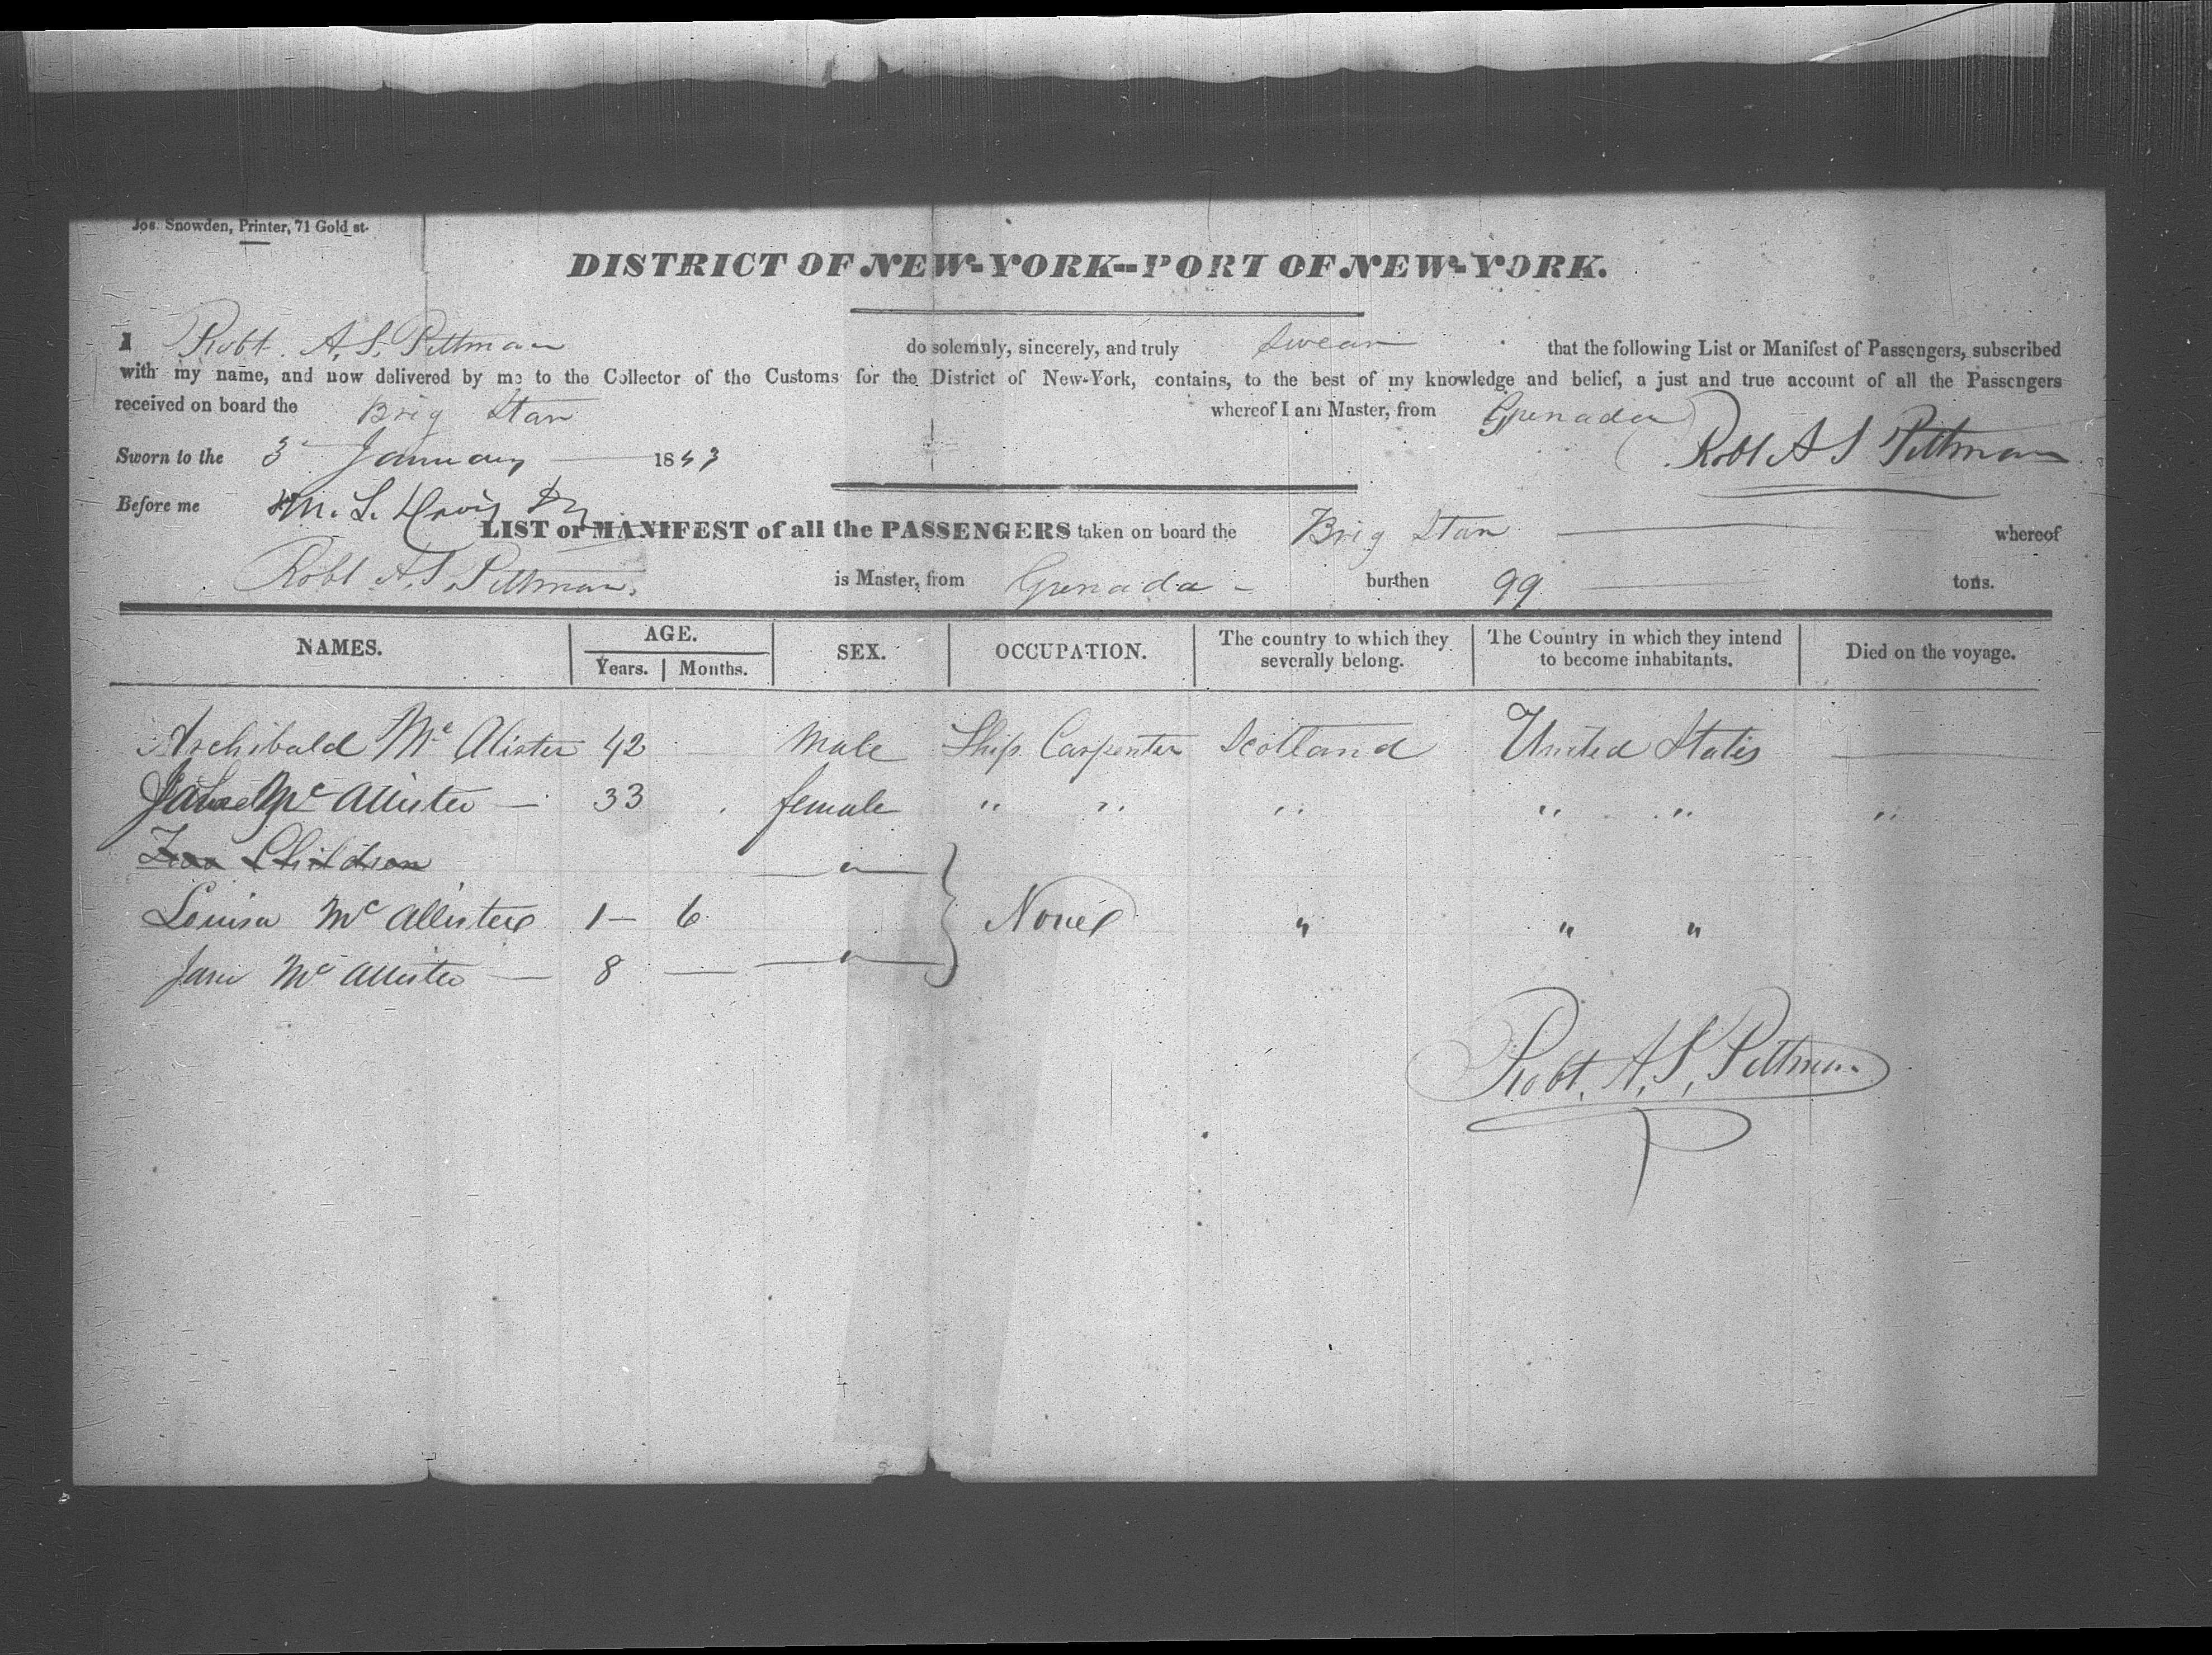 Jos. Snowden, Printer, 71 Gold st.
DISTRICT OF NEW-YORK--PORT OF NEW-YORK.
I Robt. A. S. Pittman do solemnly, sincerely, and truly Swear that the following List or Manifest of Passengers, subscribed
with my name, and now delivered by me to the Collector of the Customs for the District of New-York, contains, to the best of my knowledge and belief, a just and true account of all the Passengers
received on board the Brig Star whereof I am Master, from Grenada
Sworn to the 3 January 1843 Robt A S Pittman
Before me M. L. Davis
LIST or MANIFEST of all the PASSENGERS taken on board the Brig Star whereof
Robt A. S Pittman. is Master, from Grenada - burthen 99 tons.
NAMES. AGE. Years. Months. SEX. OCCUPATION. The country to which they severally belong. The Country in which they intend to become inhabitants. Died on the voyage.
Archibald Mc Alister 42 Male Ship Carpenter Scotland United States —
Mc Allister — 33 female " " " " " "
Two Children "
Louisa Mc Allister 1 — 6 None " " "
Jane Mc Allister — 8 — "
Robt. A. S. Pittman